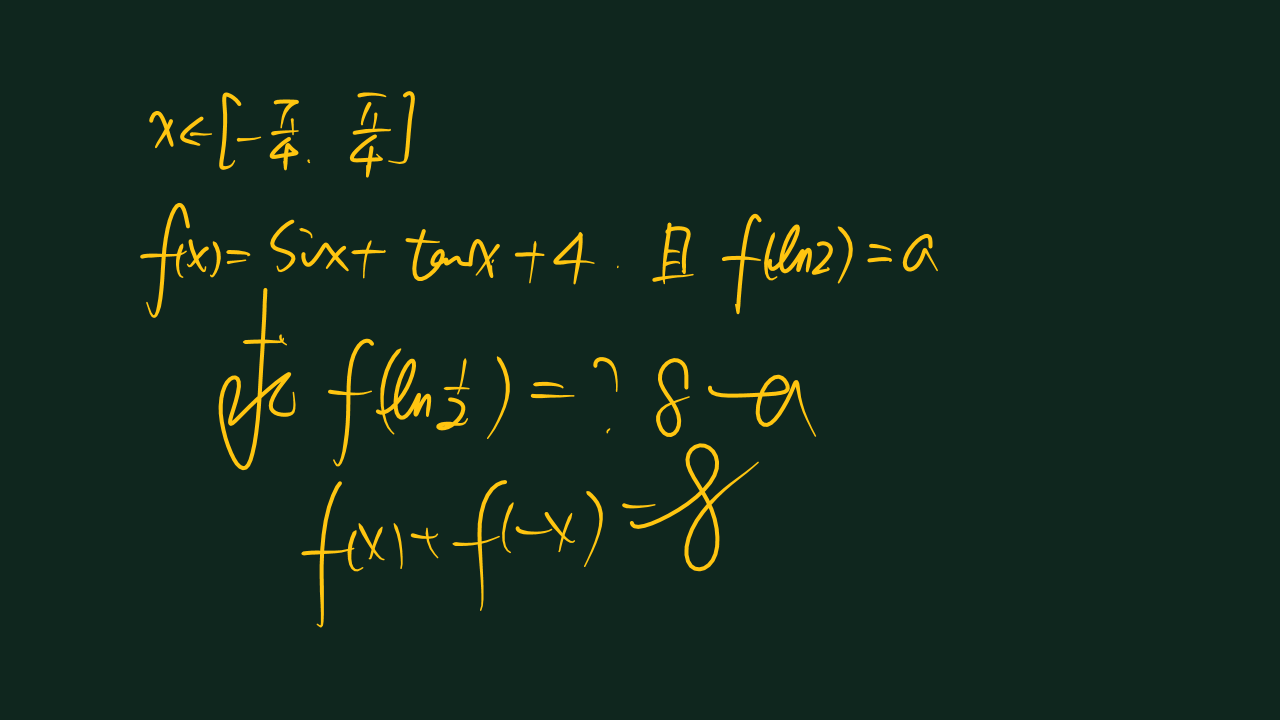 x∈[-π/4. π/4]
f(x)= Sinx+ tanx +4. 且 f(ln2)=a
求 f(ln 1/2)=? 8-a
f(x)+f(-x)=8